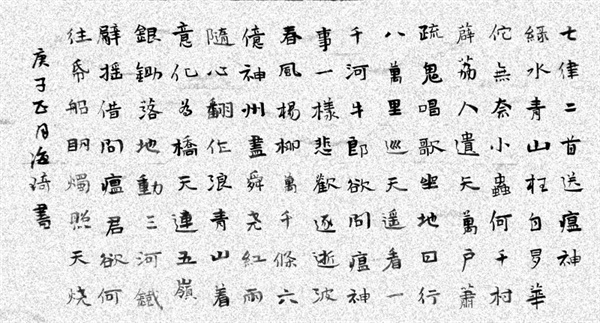 七律二首送瘟神
綠水青山枉自多華
佗無奈小蟲何千村
薜荔人遺矢萬戶蕭
疏鬼唱歌坐地日行
八萬里巡天遥看一
千河牛郎欲問瘟神
事一樣悲歡逐逝波
春風楊柳萬千條六
億神州盡舜尧紅雨
隨心翻作浪青山着
意化為橋天連五嶺
銀鋤落地動三河鐵
臂摇借问瘟君欲何
往帋船明燭照天烧
庚子正月海琦書